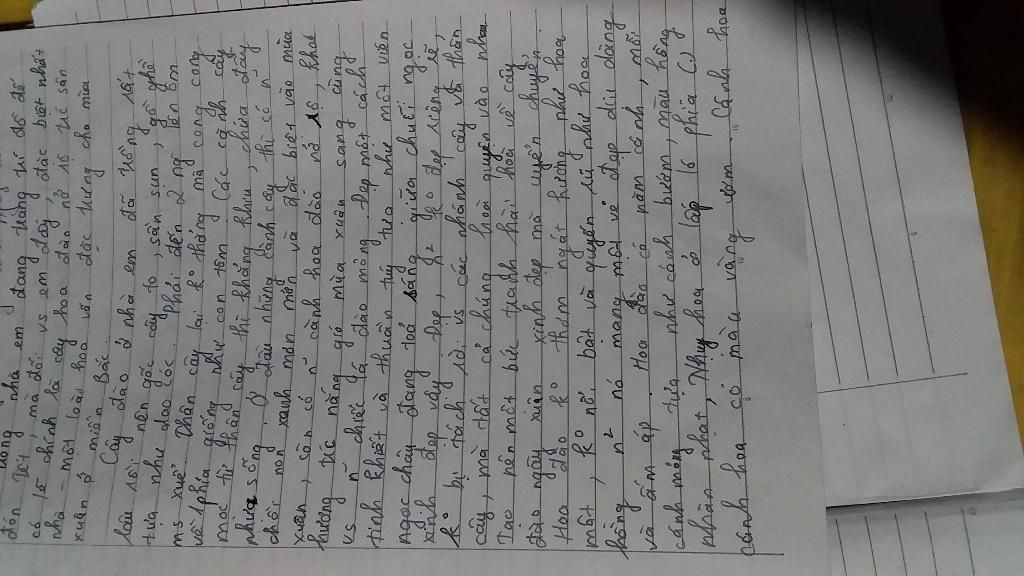 đón Tết, nhà em đang trang trí để đố
có lẽ, mà đối vs em đấy, đặc biệt nhất
nhà - chính là cây hoa đào nở rộ trc sân
xuân ở miền Bắc. một loài hoa vốn đặc trưng cho mùa
Cây đào ở nhà em đã trồng rất
lâu rồi nên gốc cây to, sần sùi, gồ ghề
tựa như dao cóc. Phải đến 2 ng lớn ôm
ms xuể. Thân cây lại ko thẳng mà cong cong
về 1 phía giống như con tôm. Các cành cây
mọc từ thân cây thì khẳng khiu, chứa đầy
nhựa sống. Ở đầu những cành cây thì có n~
chồi non xanh mơn mởn và đặc biệt vào mùa
xuân, còn có n~ cánh hoa đào nở rộ, khoe
hương sắc nắng gió mùa xuân sang cùng
vs n~ chiếc lá đào mỏng. Đẹp một cách
tinh khiết và thuần túy tựa như một viên
ngọc châu đang toả sáng giữa chuỗi ngọc
xinh đẹp vậy. Đẹp, n2 ko đẹp riêng lẽ,
ko bị tách rời vs các nhánh cây và thân
cây, mà tất cả chúng hoà quyện vào nhau
Tạo nên một bức tranh hài hoà về cây
đào ngày xuân xinh đẹp mà uyển chuyển.
Hoa đào ko thơm ngát hương như hoa
mật, ko nổi bật và quyến rũ như hoa
hồng n2 nó mang một vẻ đẹp dịu dàng
và ấm áp. Hoa đào có năm cánh, mỗi
cánh mỏng tựa như cánh bướm, màu hồng
nhàn nhạt, Nhụy hoa ở lấp ló phía
cánh hoa có màu vàng ươm. Cánh hoa